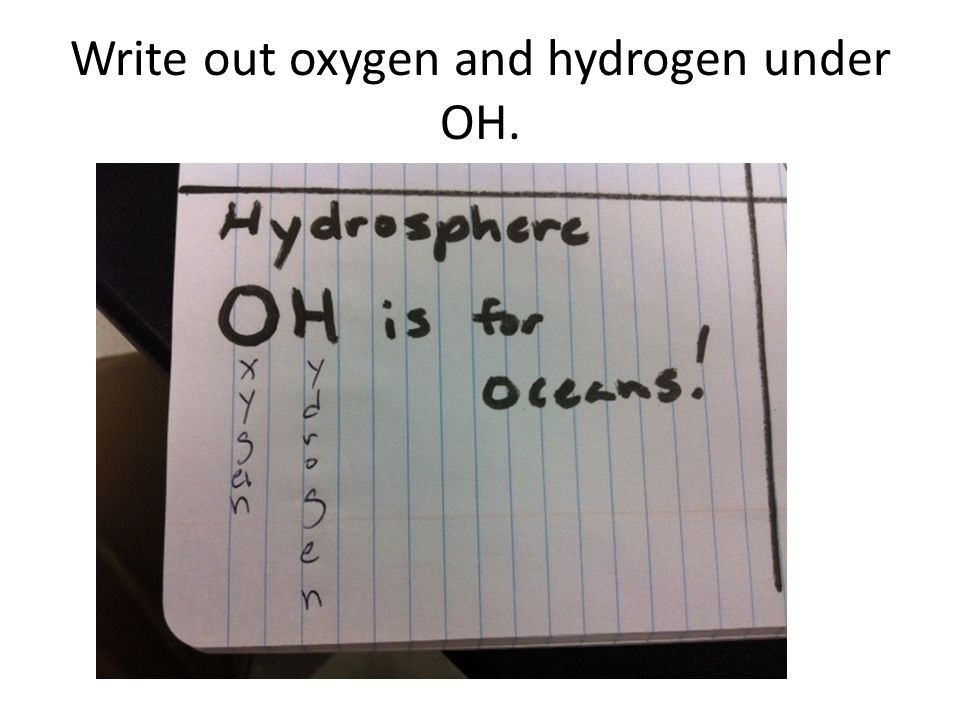 Write out oxygen and hydrogen under
OH.
Hydrosphere
OH is for
oceans!
xygen
ydrogen